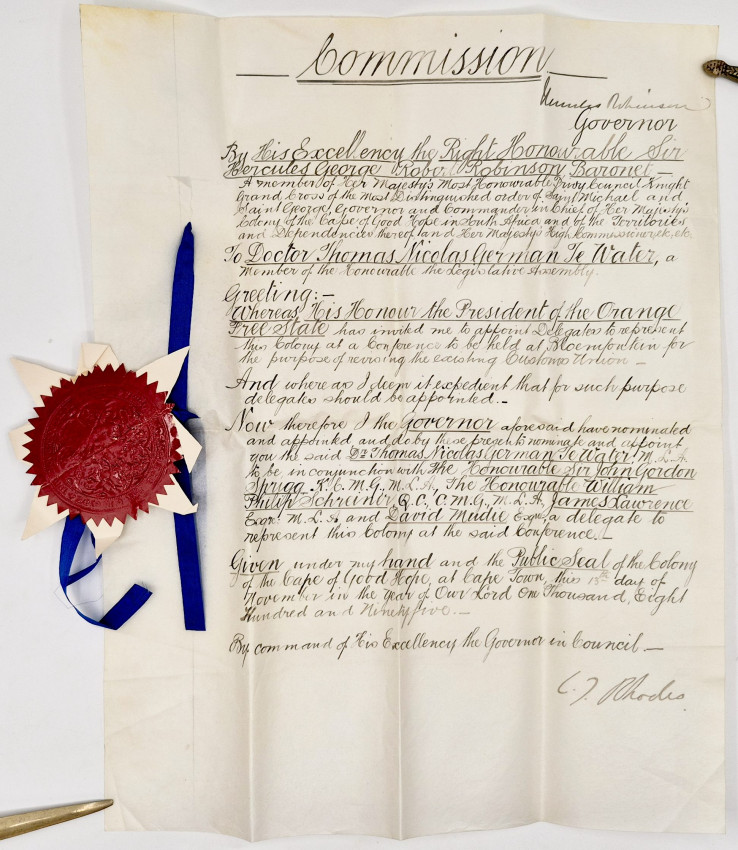 Commission
Hercules Robinson
Governor
By His Excellency the Right Honourable Sir
Hercules George Robert Robinson, Baronet —
A member of Her Majesty's Most Honourable Privy Council Knight
Grand Cross of the Most Distinguished order of Saint Michael and
Saint George, Governor and Commander in Chief of Her Majesty's
Colony of the Cape of Good Hope in South Africa and of the Territories
and Dependencies thereof and Her Majesty's High Commissioner, &c, &c.
To Doctor Thomas Nicolas German Te Water, a
Member of the Honourable the Legislative Assembly.
Greeting:—
Whereas His Honour the President of the Orange
Free State has invited me to appoint Delegates to represent
this Colony at a Conference to be held at Bloemfontein for
the purpose of revising the existing Customs Union —
And where as I deem it expedient that for such purpose
delegates should be appointed. —
Now therefore I the Governor aforesaid have nominated
and appointed and do by these presents nominate and appoint
you the said Dr Thomas Nicolas German Te Water, M.L.A.
to be in conjunction with The Honourable Sir John Gordon
Sprigg, K.C.M.G., M.L.A., The Honourable William
Philip Schreiner, Q.C., C.M.G., M.L.A, James Lawrence
Esqre. M.L.A, and David Mudie Esqre, a delegate to
represent this Colony at the said Conference.
Given under my hand and the Public Seal of the Colony
of the Cape of Good Hope, at Cape Town, this 15th day of
November in the Year of Our Lord One Thousand, Eight
Hundred and Ninety five. —
By command of His Excellency the Governor in Council —
C. J. Rhodes.